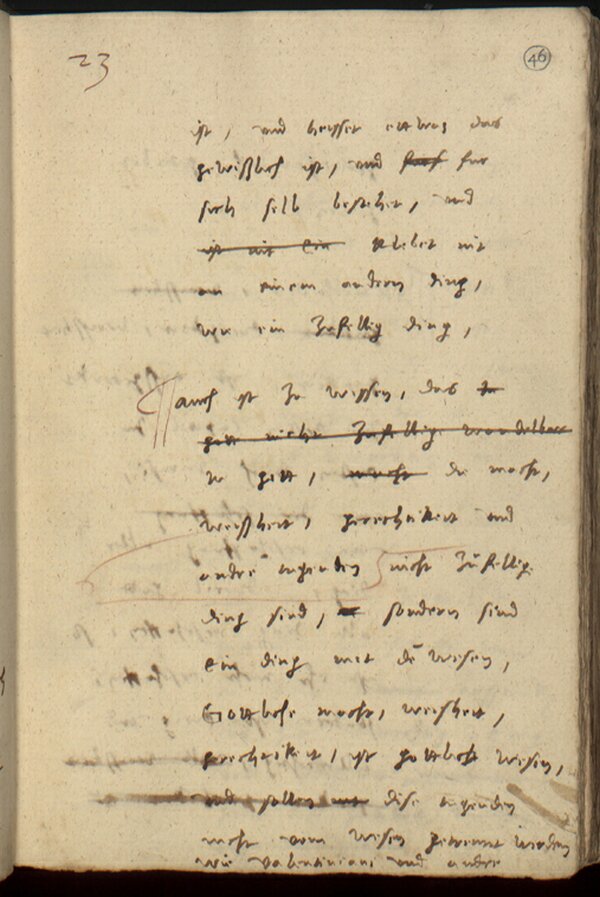 23
46
ist, und heisset ettwas das
gewißlich ist, und fur
sich selb bestehet, und
ist nit ein klebet nit
an einem andern ding,
wie ein zufellig ding,
auch ist zu wissen, das in
gott nicht zufellige wandelbar
in gott, macht die macht,
weißheit, gerechtikeit und
andre tugenden nicht zufellige
ding sind, sondern sind
ein ding mit dē wesen,
Gottliche macht, weisheit,
gerechtikeit, ist gottlich wesen,
und sollen dise tugenden
nicht vom wesen getrennt werden
wie Valentiniani und andre